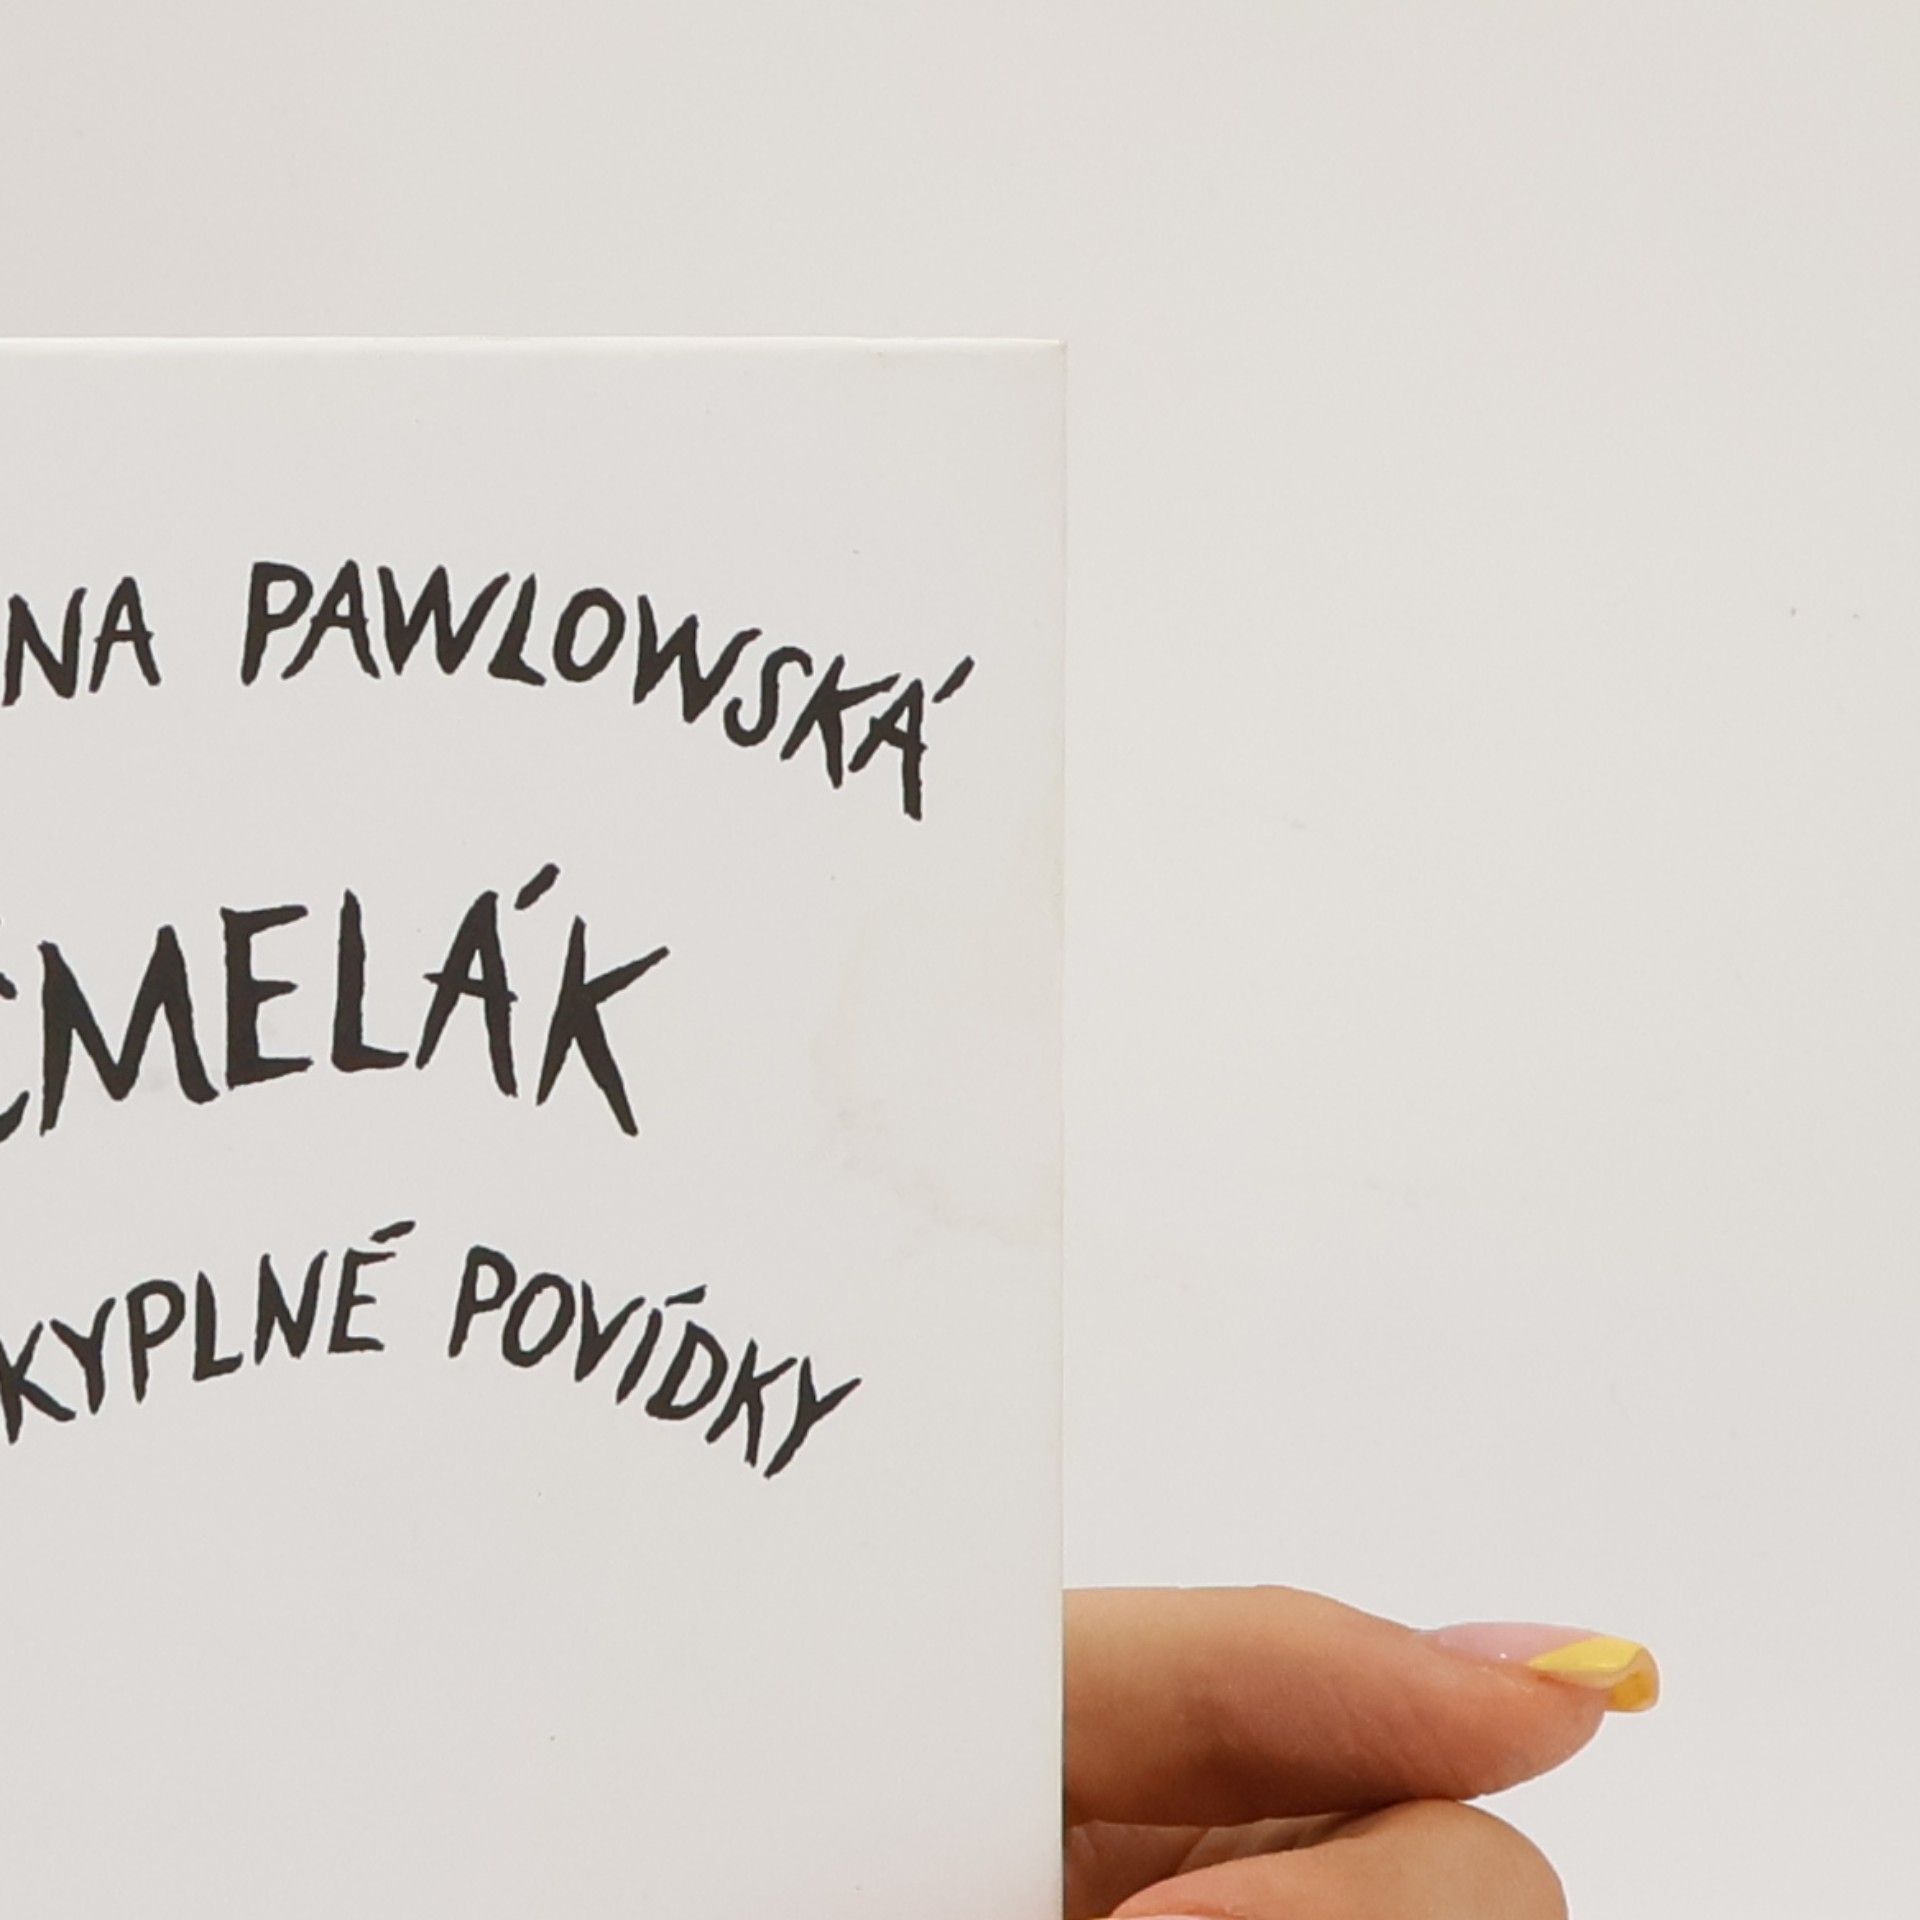 NA PAWLOWSKÁ
ČMELÁK
KYPLNÉ POVÍDKY